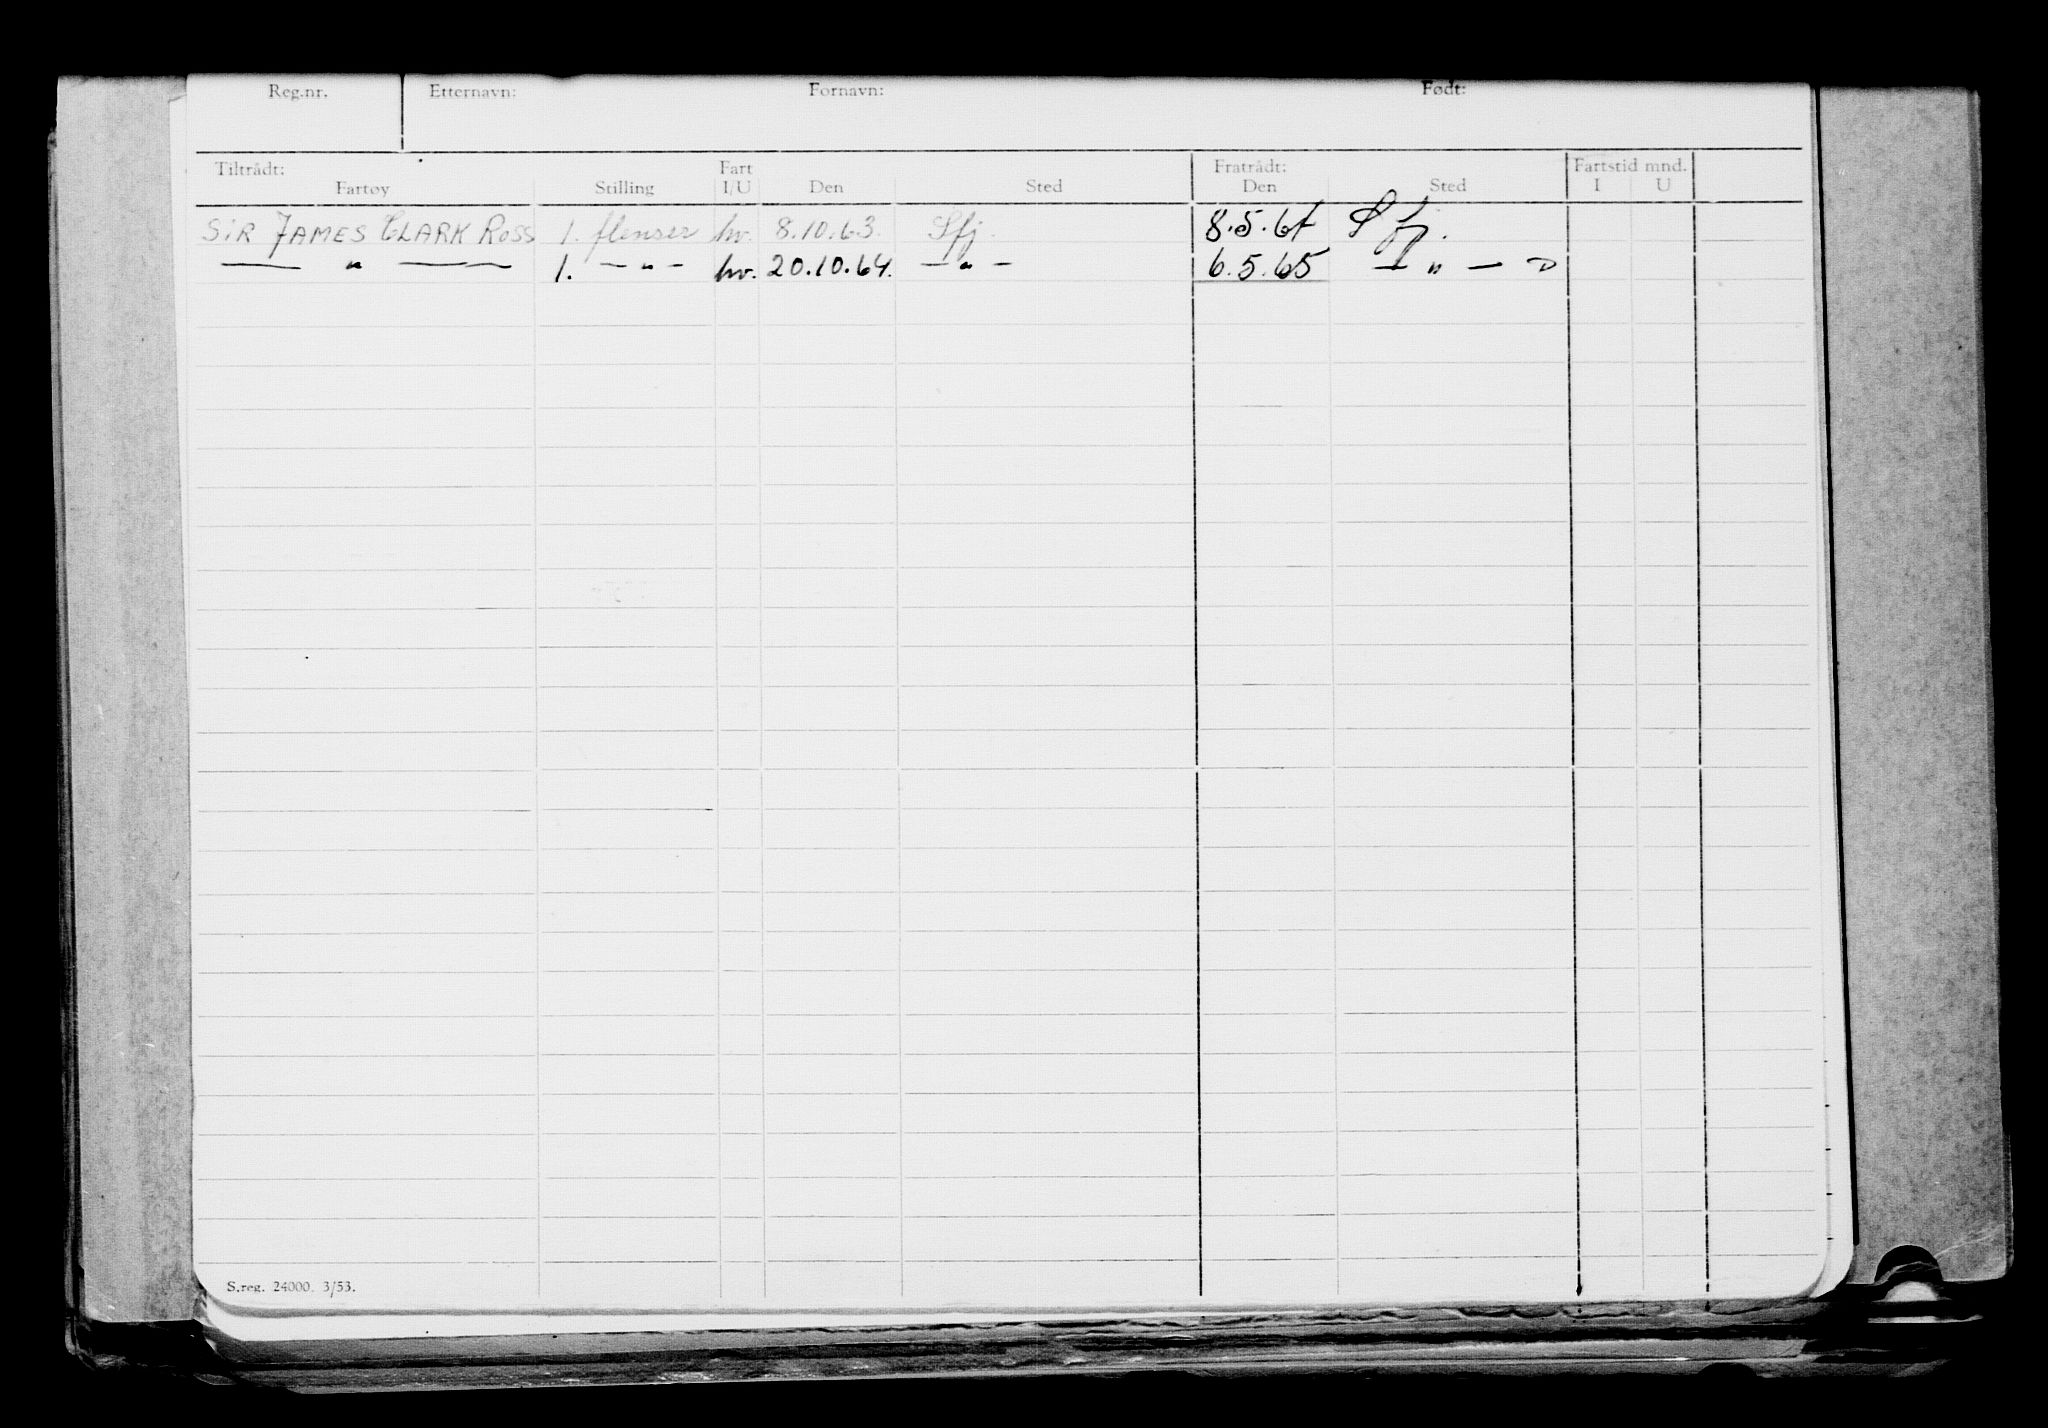 Reg.nr. Etternavn: Fornavn: Født:
Tiltrådt: Fart Fratrådt: Fartstid mnd.
Fartøy Stilling I/U Den Sted Den Sted I U
SIR JAMES CLARK ROSS 1. flenser hv. 8.10.63. Sfj. 8.5.64 Sfj.
— " — 1. — " — hv. 20.10.64. — " — 6.5.65 — " —
S.reg. 24000. 3/53.